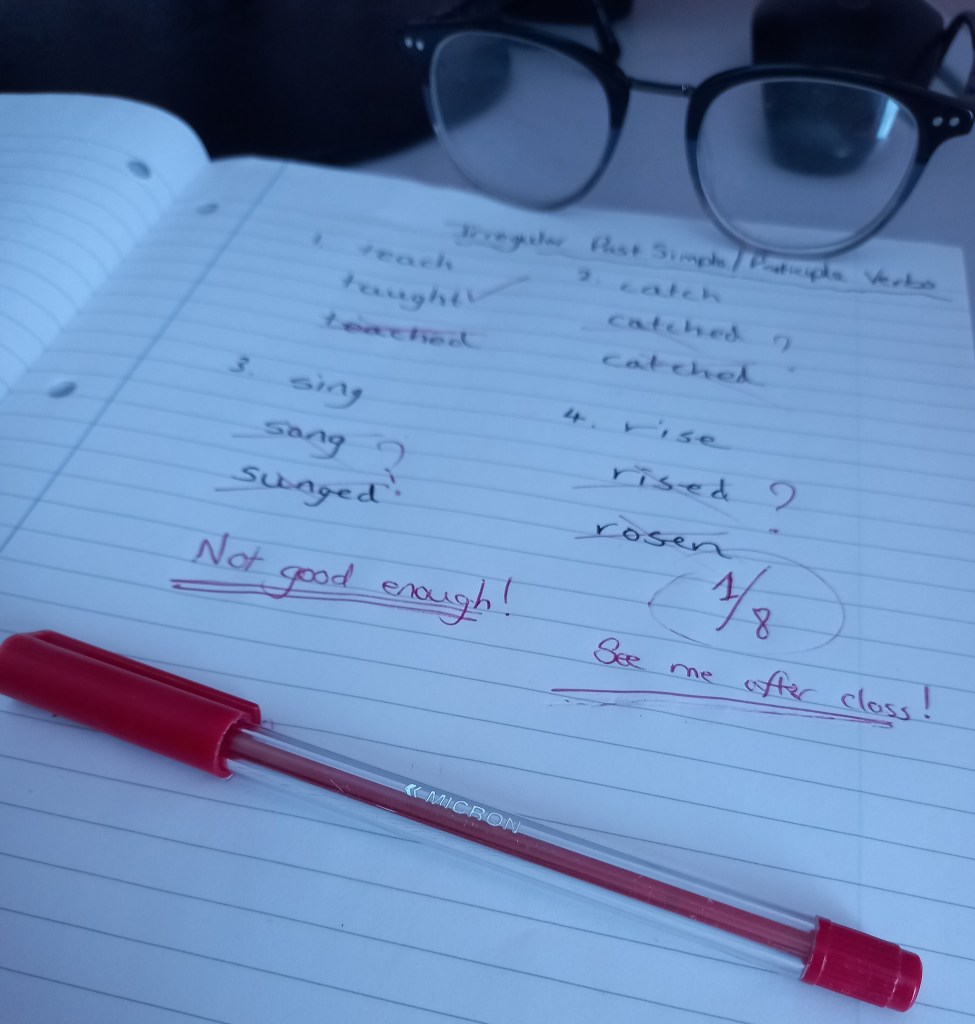 Irregular Past Simple/Participle Verbs
1. teach
taught
teached
2. catch
catched ?
catched
3. sing
sang ?
sunged
4. rise
rised ?
rosen
Not good enough!
1/8
See me after class!
MICRON